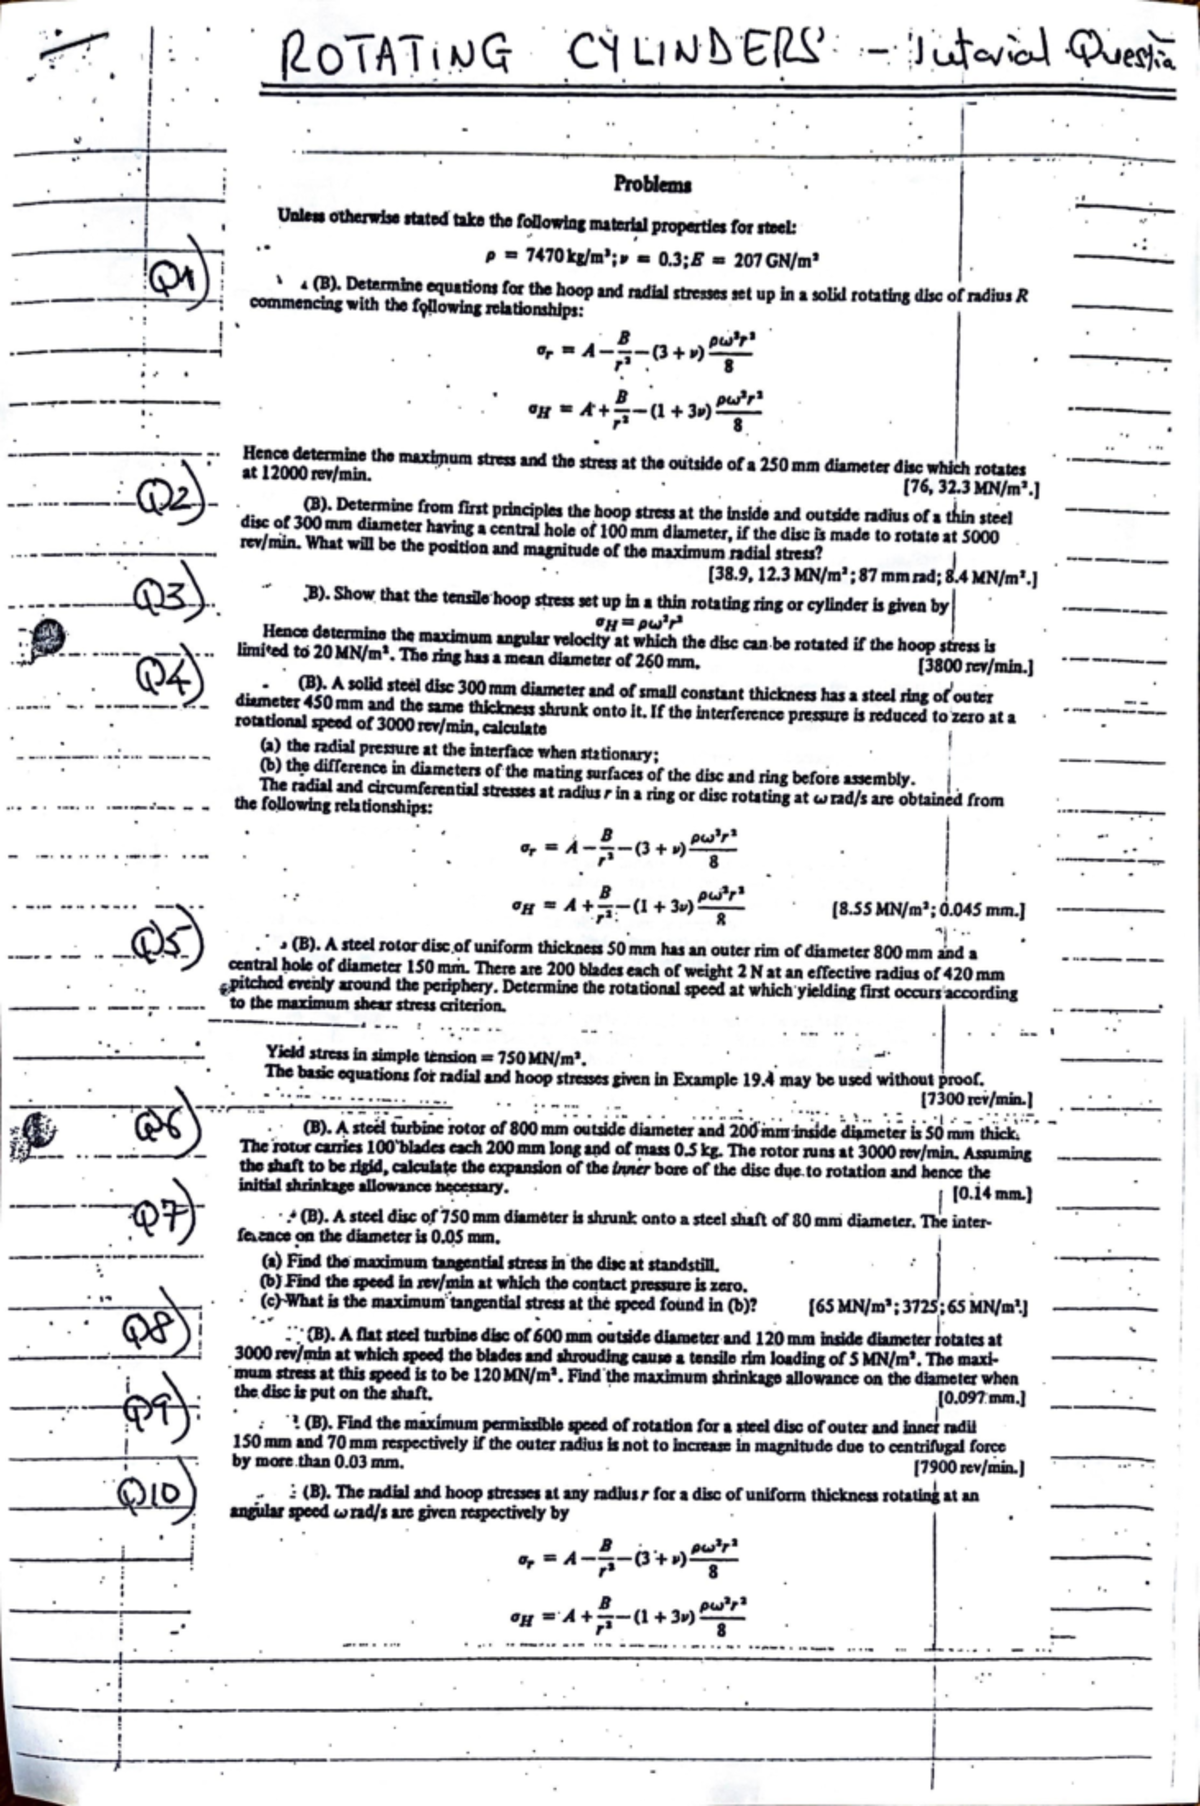 ROTATING CYLINDERS - Tutorial Questio
Problems
Unless otherwise stated take the following material properties for steel:
ρ = 7470 kg/m³; ν = 0.3; E = 207 GN/m²
Q1)
(B). Determine equations for the hoop and radial stresses set up in a solid rotating disc of radius R
commencing with the following relationships:
σr = A − B/r² − (3 + ν) ρω²r²/8
σH = A + B/r² − (1 + 3ν) ρω²r²/8
Hence determine the maximum stress and the stress at the outside of a 250 mm diameter disc which rotates
at 12000 rev/min. [76, 32.3 MN/m².]
Q2)
(B). Determine from first principles the hoop stress at the inside and outside radius of a thin steel
disc of 300 mm diameter having a central hole of 100 mm diameter, if the disc is made to rotate at 5000
rev/min. What will be the position and magnitude of the maximum radial stress?
[38.9, 12.3 MN/m²; 87 mm rad; 8.4 MN/m².]
Q3)
B). Show that the tensile hoop stress set up in a thin rotating ring or cylinder is given by
σH = ρω²r²
Hence determine the maximum angular velocity at which the disc can be rotated if the hoop stress is
limited to 20 MN/m². The ring has a mean diameter of 260 mm. [3800 rev/min.]
Q4)
(B). A solid steel disc 300 mm diameter and of small constant thickness has a steel ring of outer
diameter 450 mm and the same thickness shrunk onto it. If the interference pressure is reduced to zero at a
rotational speed of 3000 rev/min, calculate
(a) the radial pressure at the interface when stationary;
(b) the difference in diameters of the mating surfaces of the disc and ring before assembly.
The radial and circumferential stresses at radius r in a ring or disc rotating at ω rad/s are obtained from
the following relationships:
σr = A − B/r² − (3 + ν) ρω²r²/8
σH = A + B/r² − (1 + 3ν) ρω²r²/8 [8.55 MN/m²; 0.045 mm.]
Q5)
(B). A steel rotor disc of uniform thickness 50 mm has an outer rim of diameter 800 mm and a
central hole of diameter 150 mm. There are 200 blades each of weight 2 N at an effective radius of 420 mm
pitched evenly around the periphery. Determine the rotational speed at which yielding first occurs according
to the maximum shear stress criterion.
Yield stress in simple tension = 750 MN/m².
The basic equations for radial and hoop stresses given in Example 19.4 may be used without proof.
[7300 rev/min.]
Q6)
(B). A steel turbine rotor of 800 mm outside diameter and 200 mm inside diameter is 50 mm thick.
The rotor carries 100 blades each 200 mm long and of mass 0.5 kg. The rotor runs at 3000 rev/min. Assuming
the shaft to be rigid, calculate the expansion of the inner bore of the disc due to rotation and hence the
initial shrinkage allowance necessary. [0.14 mm.]
Q7)
(B). A steel disc of 750 mm diameter is shrunk onto a steel shaft of 80 mm diameter. The inter-
ference on the diameter is 0.05 mm.
(a) Find the maximum tangential stress in the disc at standstill.
(b) Find the speed in rev/min at which the contact pressure is zero.
(c) What is the maximum tangential stress at the speed found in (b)? [65 MN/m²; 3725; 65 MN/m².]
Q8)
(B). A flat steel turbine disc of 600 mm outside diameter and 120 mm inside diameter rotates at
3000 rev/min at which speed the blades and shrouding cause a tensile rim loading of 5 MN/m². The maxi-
mum stress at this speed is to be 120 MN/m². Find the maximum shrinkage allowance on the diameter when
the disc is put on the shaft. [0.097 mm.]
Q9)
(B). Find the maximum permissible speed of rotation for a steel disc of outer and inner radii
150 mm and 70 mm respectively if the outer radius is not to increase in magnitude due to centrifugal force
by more than 0.03 mm. [7900 rev/min.]
Q10)
(B). The radial and hoop stresses at any radius r for a disc of uniform thickness rotating at an
angular speed ω rad/s are given respectively by
σr = A − B/r² − (3 + ν) ρω²r²/8
σH = A + B/r² − (1 + 3ν) ρω²r²/8